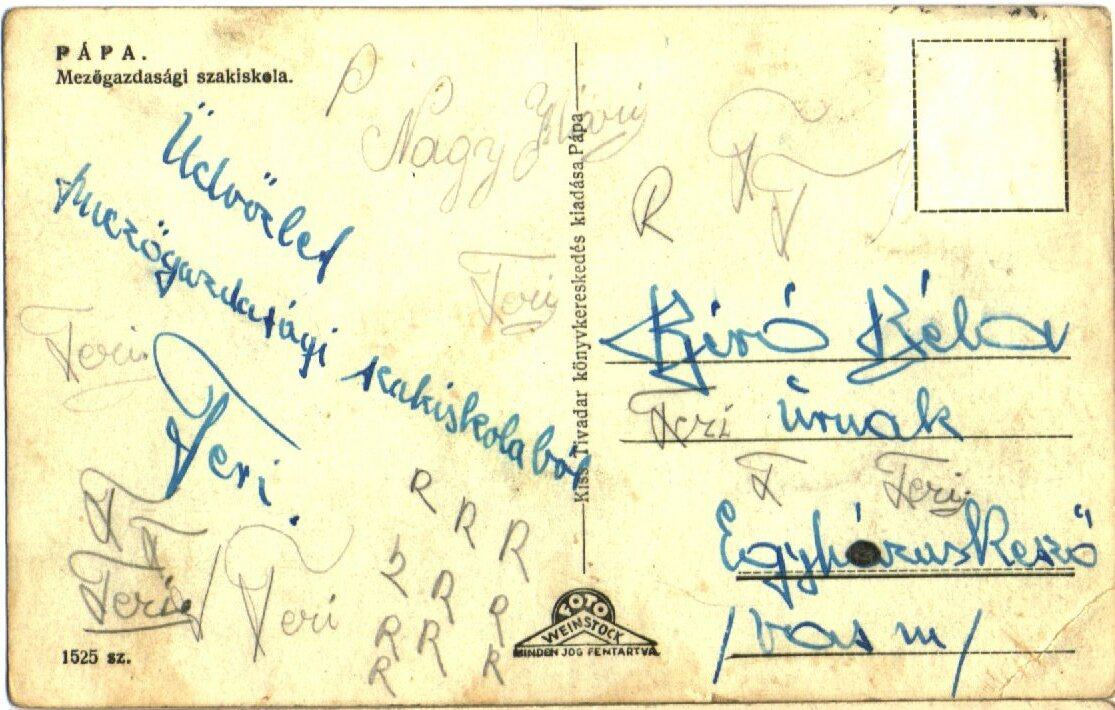 PÁPA.
Mezőgazdasági szakiskola.
P
Nagy Mári
Üdvözlet
mezőgazdasági szakiskolaból
Feri.
Feri
Feri
Feri
Feri
R R R
R R R
R R R
R
1525 sz.
Kiss Tivadar könyvkereskedés kiadása, Pápa
FOTO
WEINSTOCK
MINDEN JOG FENTARTVA.
R
F
F
Biró Béla
Feri úrnak
F Feri
Egyházaskesző
/vas m/